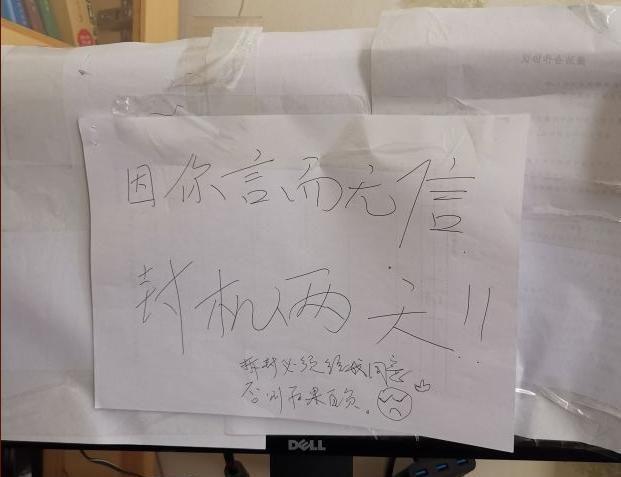 因你言而无信
封机两天!!
拆封必须经我同意
否则后果自负。
DELL